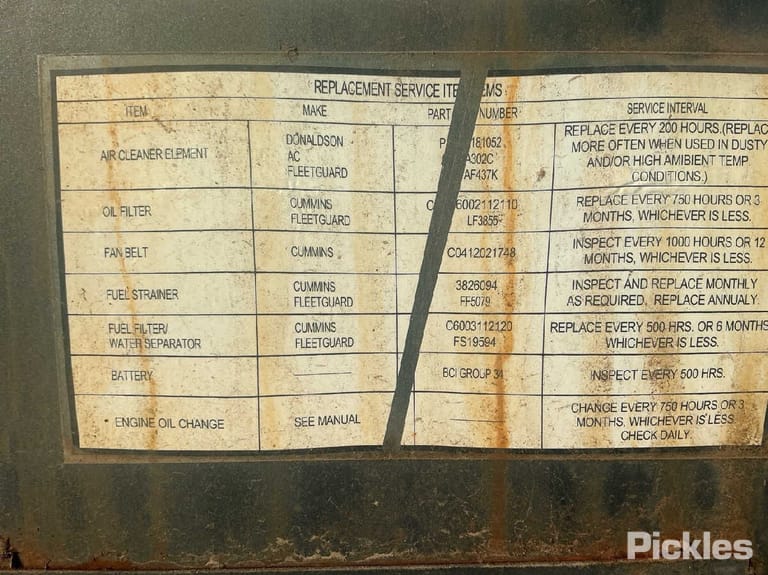 REPLACEMENT SERVICE ITE EMS
ITEM MAKE PART NUMBER SERVICE INTERVAL
AIR CLEANER ELEMENT
DONALDSON
AC
FLEETGUARD
P 181052
A302C
AF437K
REPLACE EVERY 200 HOURS.(REPLAC
MORE OFTEN WHEN USED IN DUSTY
AND/OR HIGH AMBIENT TEMP.
CONDITIONS.)
OIL FILTER
CUMMINS
FLEETGUARD
C 6002112110
LF3855
REPLACE EVERY 750 HOURS OR 3
MONTHS, WHICHEVER IS LESS.
FAN BELT
CUMMINS
C0412021748
INSPECT EVERY 1000 HOURS OR 12
MONTHS, WHICHEVER IS LESS.
FUEL STRAINER
CUMMINS
FLEETGUARD
3826094
FF5079
INSPECT AND REPLACE MONTHLY
AS REQUIRED, REPLACE ANNUALY.
FUEL FILTER/
WATER SEPARATOR
CUMMINS
FLEETGUARD
C6003112120
FS19594
REPLACE EVERY 500 HRS. OR 6 MONTHS
WHICHEVER IS LESS.
BATTERY
BCI GROUP 34
INSPECT EVERY 500 HRS.
ENGINE OIL CHANGE
SEE MANUAL
CHANGE EVERY 750 HOURS OR 3
MONTHS, WHICHEVER IS LESS
CHECK DAILY.
Pickles